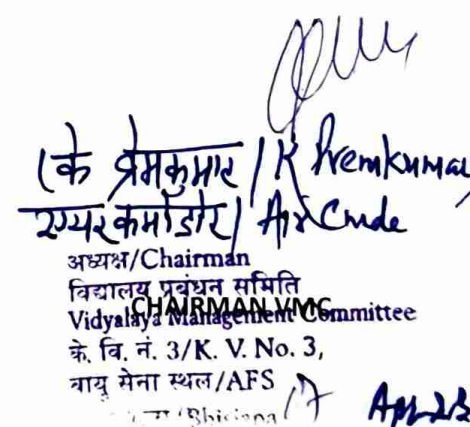 (के प्रेमकुमार / K Premkumar
एयर कमोडोर / Air Cmde
अध्यक्ष/Chairman
विद्यालय प्रबंधन समिति
CHAIRMAN VMC
Vidyalaya Management Committee
के. वि. नं. 3/K. V. No. 3,
वायु सेना स्थल/AFS
/Bhisiana 17 Apr 23